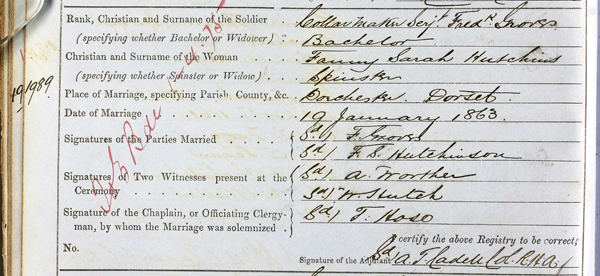 Rank, Christian and Surname of the Soldier Collar Maker Serjt Fredk Groves
(specifying whether Bachelor or Widower) Bachelor
Christian and Surname of the Woman Fanny Sarah Hutchins
(specifying whether Spinster or Widow) Spinster
Place of Marriage, specifying Parish, County, &c. Dorchester Dorset
Date of Marriage 19 January 1863
Signatures of the Parties Married Sd) F. Groves
Sd) F. S. Hutchinson
Signatures of Two Witnesses present at the Ceremony Sd) A. Worther
Sd) W. Hutch
Signature of the Chaplain, or Officiating Clergyman, by whom the Marriage was solemnized Sd) T. Hoso
I certify the above Registry to be correct;
No. Signature of the Adjutant Sd A. T. Cadell Col. R.H.A.
19/1989